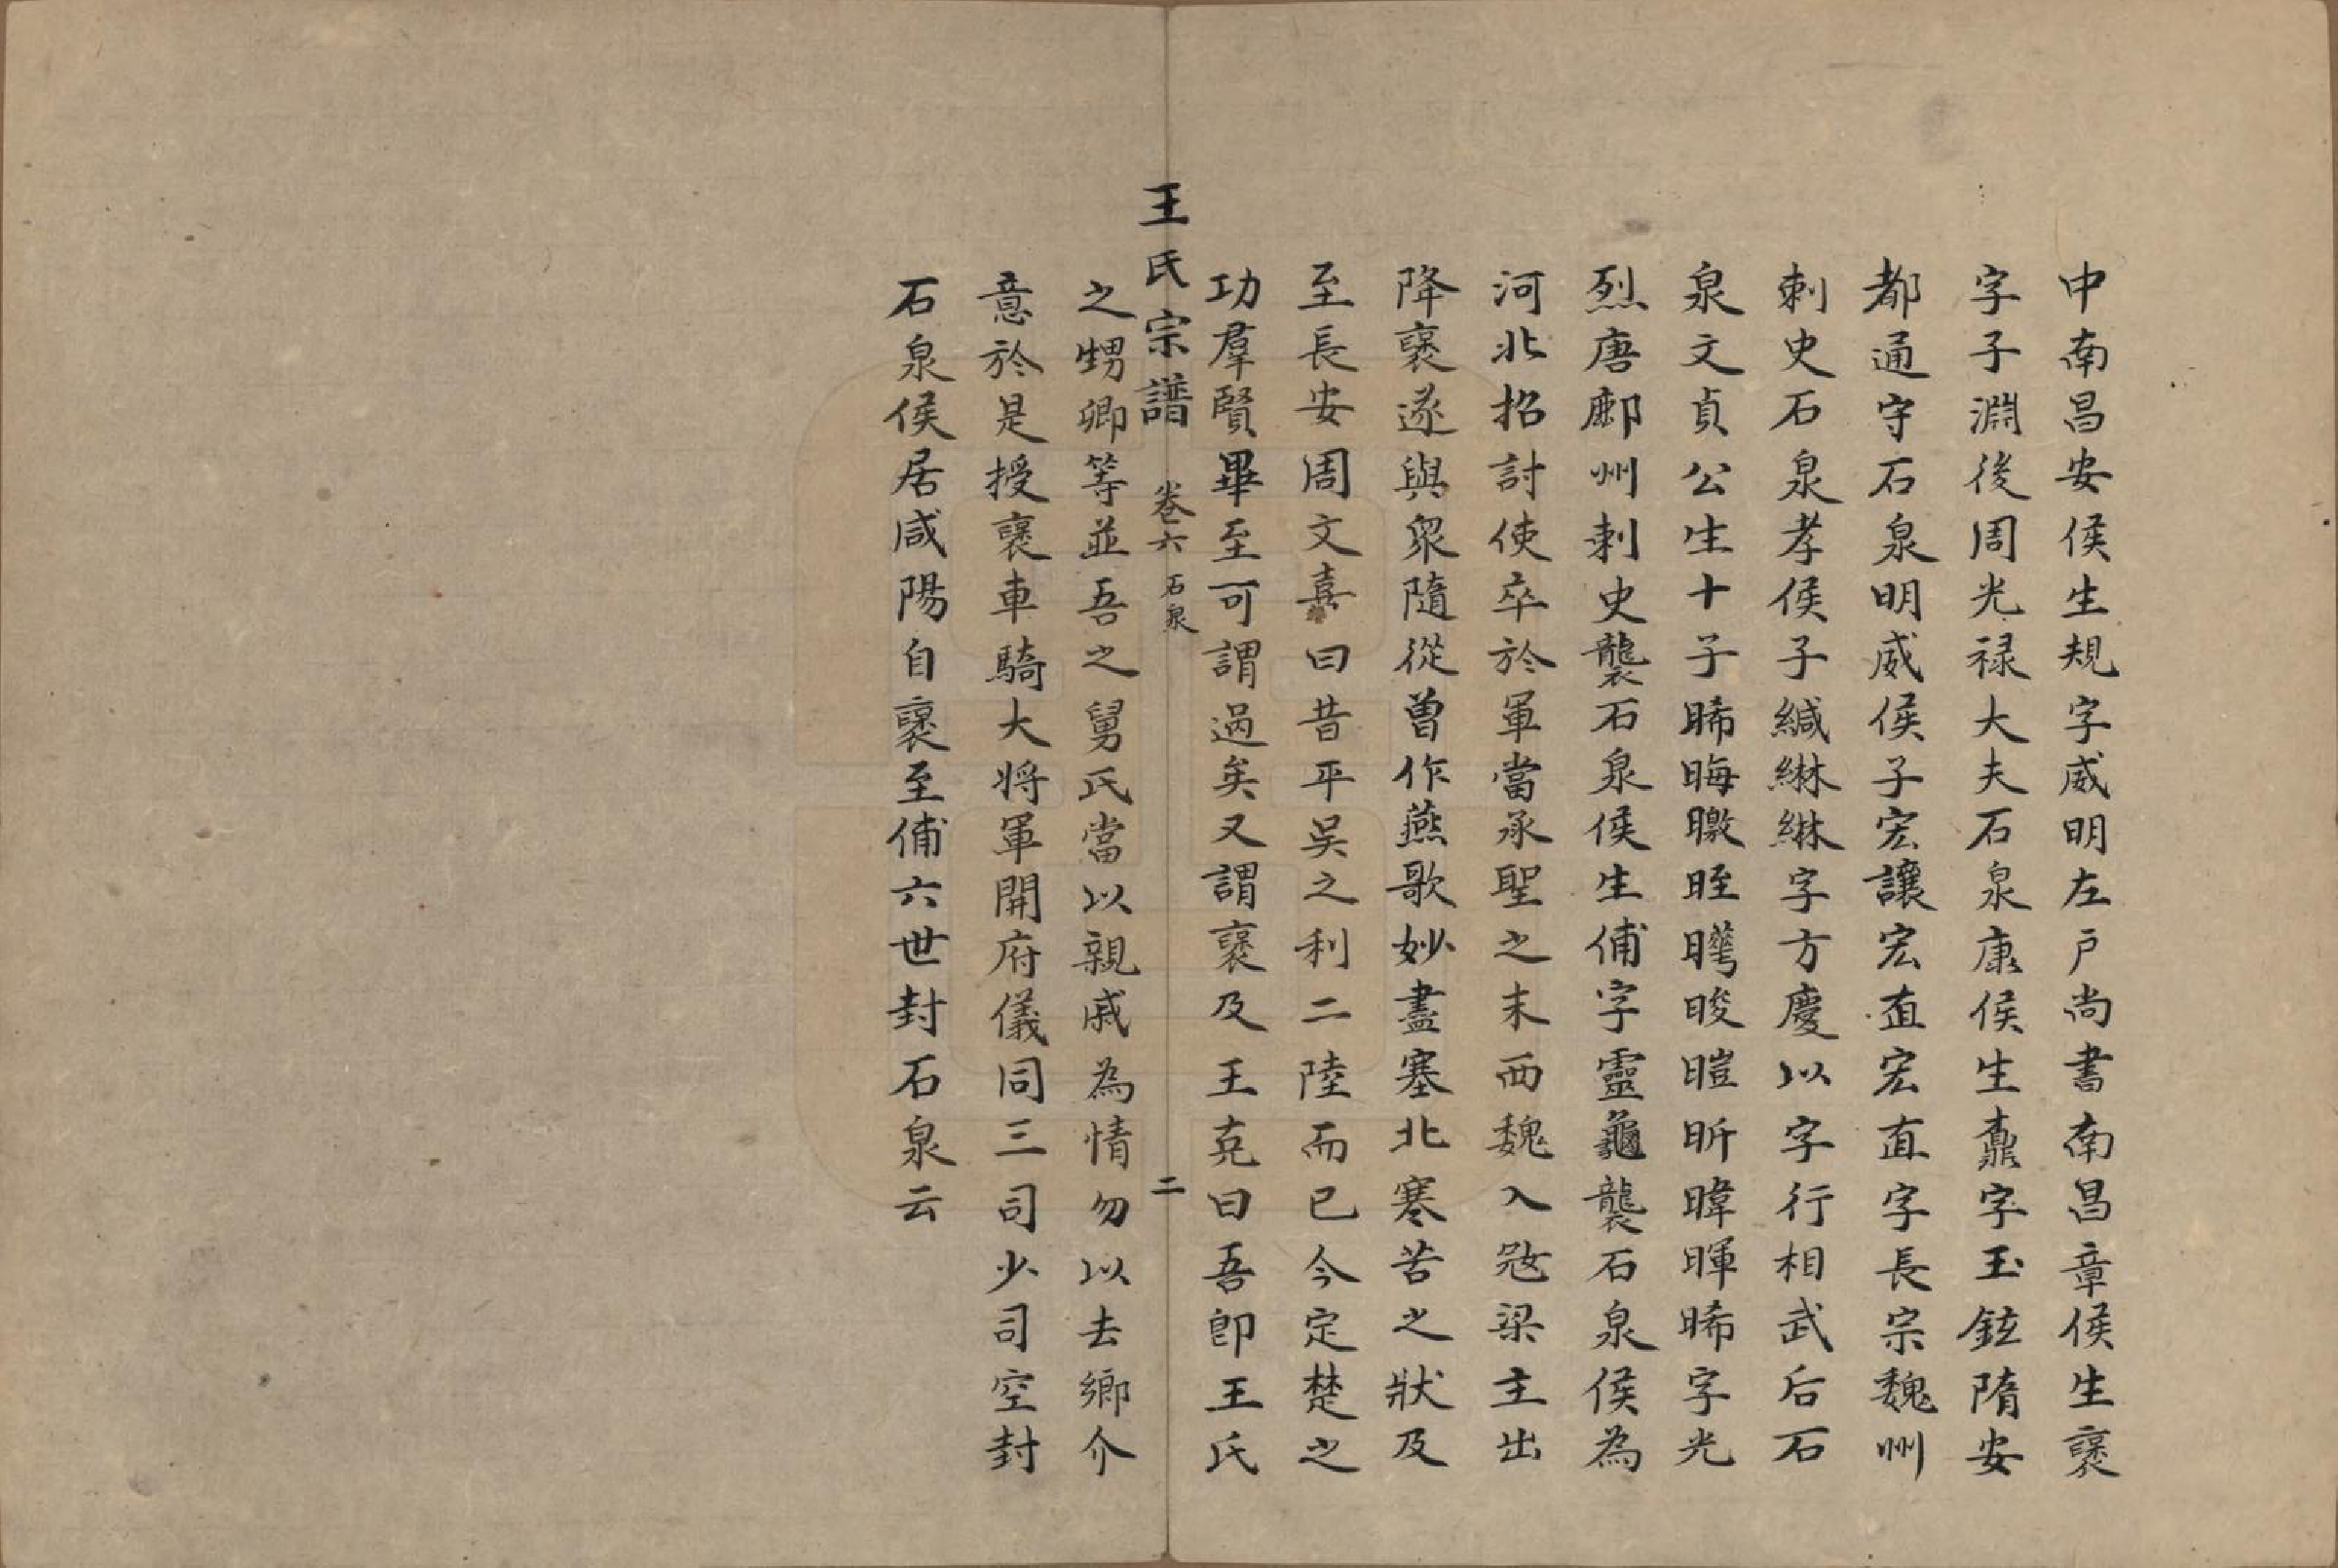 中南昌安侯生規字威明左戶尚書南昌章侯生襃
字子淵後周光禄大夫石泉康侯生鼒字玉鉉隋安
都通守石泉明威侯子宏讓宏直宏直字長宗魏州
刺史石泉孝侯子緘綝綝字方慶以字行相武后石
泉文貞公生十子晞晦曒晊曄晙暟昕暐暉晞字光
烈唐鄜州刺史襲石泉侯生俌字靈龜襲石泉侯為
河北招討使卒於軍當承聖之末西魏入寇梁主出
降襃遂與衆隨從曾作燕歌妙盡塞北寒苦之狀及
至長安周文喜曰昔平吴之利二陸而已今定楚之
功羣賢畢至可謂過矣又謂襃及王克曰吾即王氏
王氏宗譜 卷六 石泉 二
之甥卿等並吾之舅氏當以親戚為情勿以去鄉介
意於是授襃車騎大将軍開府儀同三司少司空封
石泉侯居咸陽自襃至俌六世封石泉云